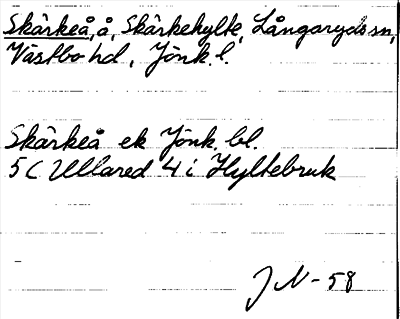 Skärkeå, å, Skärkehylte, Långaryds sn,
Västbo hd, Jönk. l.
Skärkeå ek Jönk. bl.
5 C Ullared 4 i Hyltebruk
J N - 58